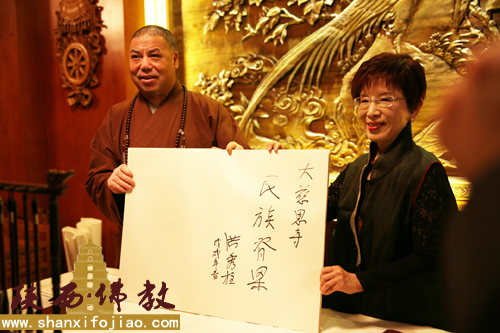 大慈恩寺
民族脊梁
洪秀柱
戊戌年
陕西·佛教
www.shanxifojiao.com